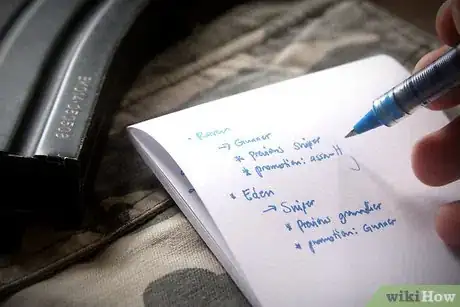 → Gunner
* previous sniper
* promotion: assault
* Eden
→ Sniper
* previous grenadier
* promotion: Gunner
wikiHow